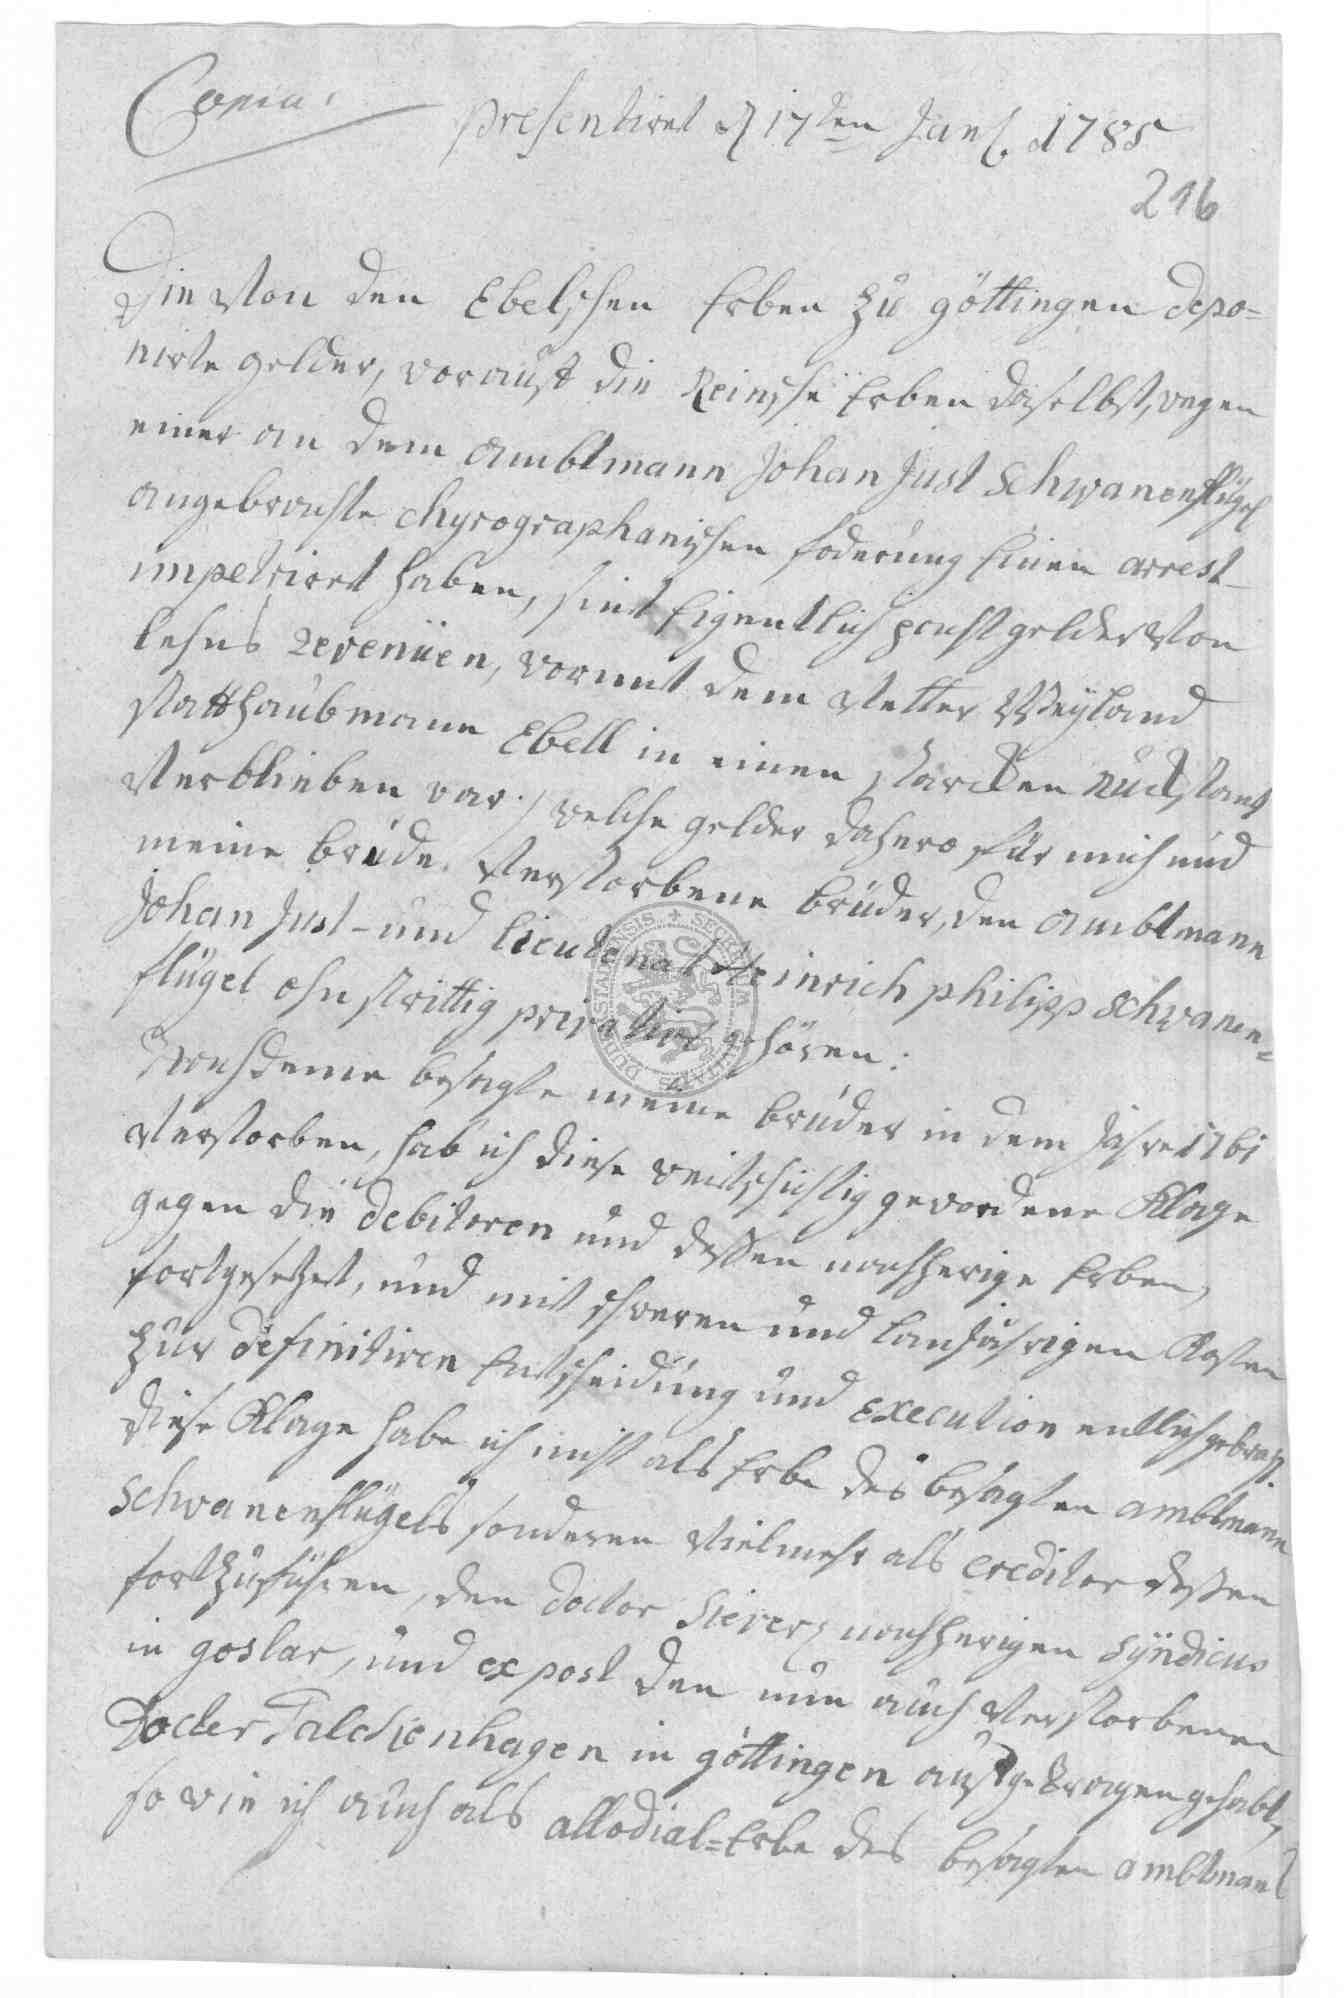 Copia.
presentiret d 17ten Jan. 1785
216
Die von den Ebelschen Erben zu göttingen depo=
nirte gelder, worauß die Reinsche Erben daselbst, wegen
einer an dem ambtmann Johan Just Schwanenflügel
angebrachte chyrographarischen foderung Einen arrest
impetriret haben, sint Eigentlich pachtgelder von
lehns Revenüen, wormit dem Vetter Weyland
statthaubmann Ebell in einen starcken Rückstant
verblieben war welche gelder dahero für mich und
meine brüde. verstorbene brüder, den ambtmann
Johan Just - und Lieutenat Heinrich philipp Schwanen=
flügel ohnstrittig privative gehören.
Nachdeme besagte meine brüder in dem Jahre 1761
verstorben, hab ich diese weitschichtig gewordene Klage
gegen die debitoren und deßen nachherige Erben,
fortgesetzet, und mit schweren und lanjährigen Kosten
zur definitiven Entscheidung und Execution entlich gebracht.
diese Klage habe ich nicht als Erbe des besagten ambtmann
Schwanenflügels sonderen vielmehr als creditor deßen
fortzuführen, den doctor Sievers nachherigen Syndicus
in goslar, und ex post den nun auch verstorbenen
Docter Falckenhagen in göttingen aufgetragen gehabt,
so wie ich auch als allodial=Erbe des besagten ambtman
SECRETUM